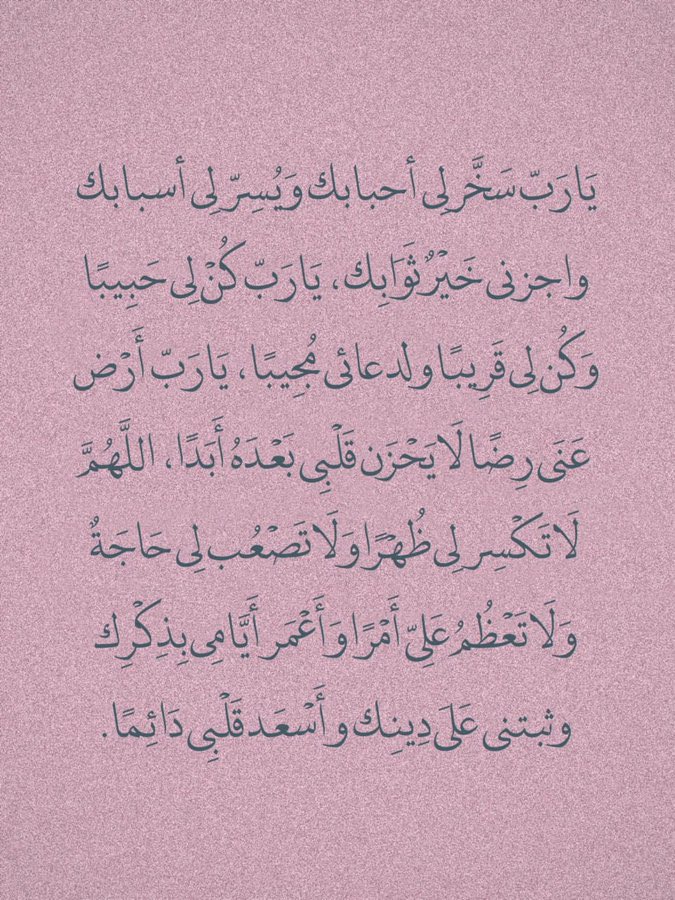 يَارَبّ سَخَّرلِى أحبابك وَيُسِرّ لِى أسبابك
واجزنى خَيْرٌ ثَوَابِك، يَارَبّ كُنْ لِى حَبِيبًا
وَكُن لِى قَرِيبًا ولدعائى مُجِيبًا، يَارَبّ أَرْض
عَنَى رِضًا لَا يَحْزَن قَلْبِى بَعْدَهُ أَبَدًا، اللَّهُمَّ
لَا تَكْسِر لِى ظُهْرًا وَلَا تَصْعُب لِى حَاجَةٌ
وَلَا تَعْظُمُ عَلِىّ أَمْرًا وَأَعْمَر أَيَّامِى بِذِكْرِك
وثبتنى عَلَى دِينِك وأَسْعَد قَلْبِى دَائِمًا.